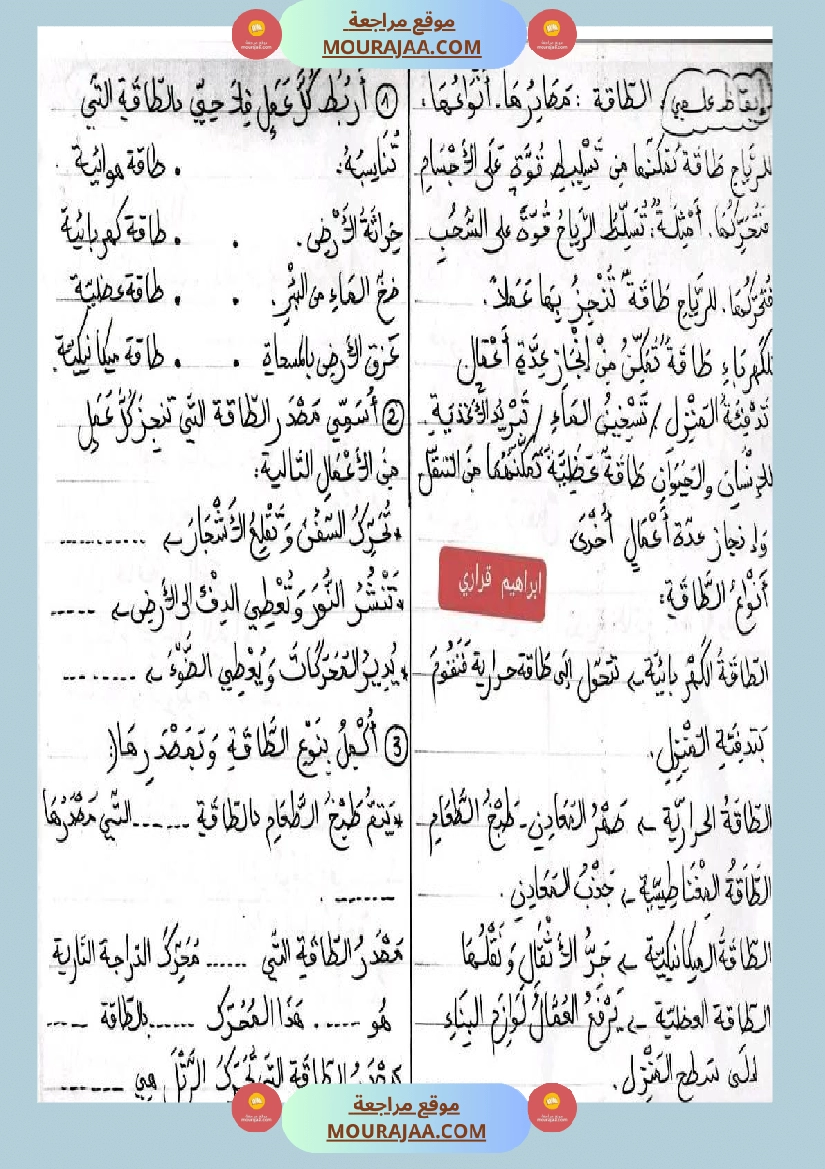 موقع مراجعة
MOURAJAA.COM
إيقاظ علمي، الطّاقة : مَصَادِرُهَا. أَنْوَاعُهَا:
للرِّيَاحِ طَاقَةٌ تُمَكِّنُهَا مِن تَسْلِيطِ قُوَّةٍ عَلَى الأَجْسَامِ
فَتُحَرِّكُهَا. أَمْثِلَةٌ: تُسَلِّطُ الرِّيَاحُ قُوَّةً على السُّحُبِ
فتُحَرِّكُهَا. للرِّيَاحِ طَاقَةٌ تُنْجِزُ بِهَا عَمَلاً.
للكَهْرَبَاءِ طَاقَةٌ تُمَكِّنُ مِنْ إِنْجَازِ عِدَّةِ أَعْمَالٍ
تَدْفِئَةُ المَنْزِلِ / تَسْخِينُ المَاءِ / تَبْرِيدُ الأَغْذِيَةِ.
للإِنْسَانِ والحَيَوَانِ طَاقَةٌ عَضَلِيَّةٌ تُمَكِّنُهُمَا مِنَ التنقّل
وَإِنجاز عدّة أَعْمَالٍ أُخْرَى
أَنْوَاعُ الطَّاقَةِ:
الطّاقَةُ الكَهْرَبائيّة ← تتحوّل إلَى طاقة حرارية فَتَقُومَ
بَتدفِئَةِ المَنْزِلِ.
الطّاقَةُ الحراريّة ← صَهْرُ المَعَادِنِ - طَبْخُ الطَّعَامِ
الطَّاقَةُ المِغْنَاطِيسِيَّة ← جَذْبُ المَعَادِنِ.
الطّاقَةُ الميكانيكيّة ← جَرُّ الأَثْقَالِ وَنَقْلُهَا
الطّاقة العضليّة ← يَرْفَعُ العُمَّالُ لَوَازِمَ البِنَاءِ
إلَى سَطحِ المَنْزِلِ.
ابراهيم قراري
① أَرْبُطُ كُلَّ عَمَلٍ فِلاَحِيٍّ بالطَّاقَةِ التّي
تُنَاسِبُهُ: . طاقة هوائيّة
حِرَاثَةُ الأَرْضِ. . . طاقة كهربائيّة
ضخُّ المَاءِ من البِئْرِ. . . طاقة عضليّة
عَزقُ الأَرْضِ بالمسحاةِ . . طاقة ميكانيكيّة
② أُسَمِّي مَصْدَرَ الطّاقة التّي تنجزُ كُلَّ عَمَلٍ
مِنَ الأَعْمَالِ التّالية:
* تُحَرِّكُ السُّفُنَ وَ تَقْلِعُ الأَشْجَارَ ← ...........
* تَنْشُرُ النُّورَ وَتُعْطِي الدِّفْءَ الى الأَرْضِ ← .....
* يُدِيرُ المُحَرِّكَاتِ وَيُعْطِي الضَّوْءَ ← .........
③ أُكْمِلُ بِنَوْعِ الطَّاقَةِ وَبَمَصْدَرِهَا:
* يَتِمُّ طَبْخُ الطَّعَامِ بالطّاقَةِ ...... التّي مَصْدَرُهَا
........ .
مَصْدَرُ الطّاقَةِ التّي ...... مُحَرِّكَ الدراجة النّارية
هُوَ ..... . هَذَا المُحَرِّكُ ...... بالطّاقة ....
مَصْدَرُ الطّاقة التي تُحَرِّكُ الرَّتْلَ هِيَ ........
موقع مراجعة
MOURAJAA.COM